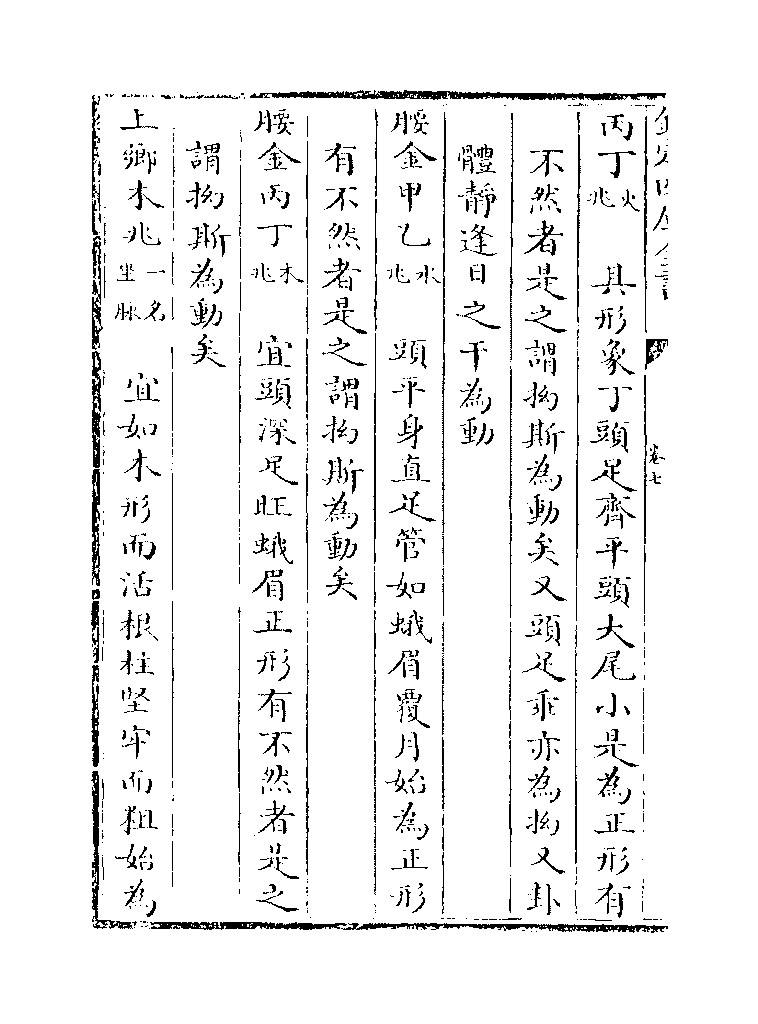 欽定四庫全書
卷七
丙丁火兆 具形象丁頭足齊平頭大尾小是為正形有
不然者是之謂拗斯為動矣又頭足乖亦為拗又卦
體靜逢日之干為動
腰金甲乙水兆 頭平身直足管如蛾眉覆月始為正形
有不然者是之謂拗斯為動矣
腰金丙丁木兆 宜頭深足旺蛾眉正形有不然者是之
謂拗斯為動矣
上鄉木兆一名坐脈 宜如木形而活根柱坚牢而粗始為